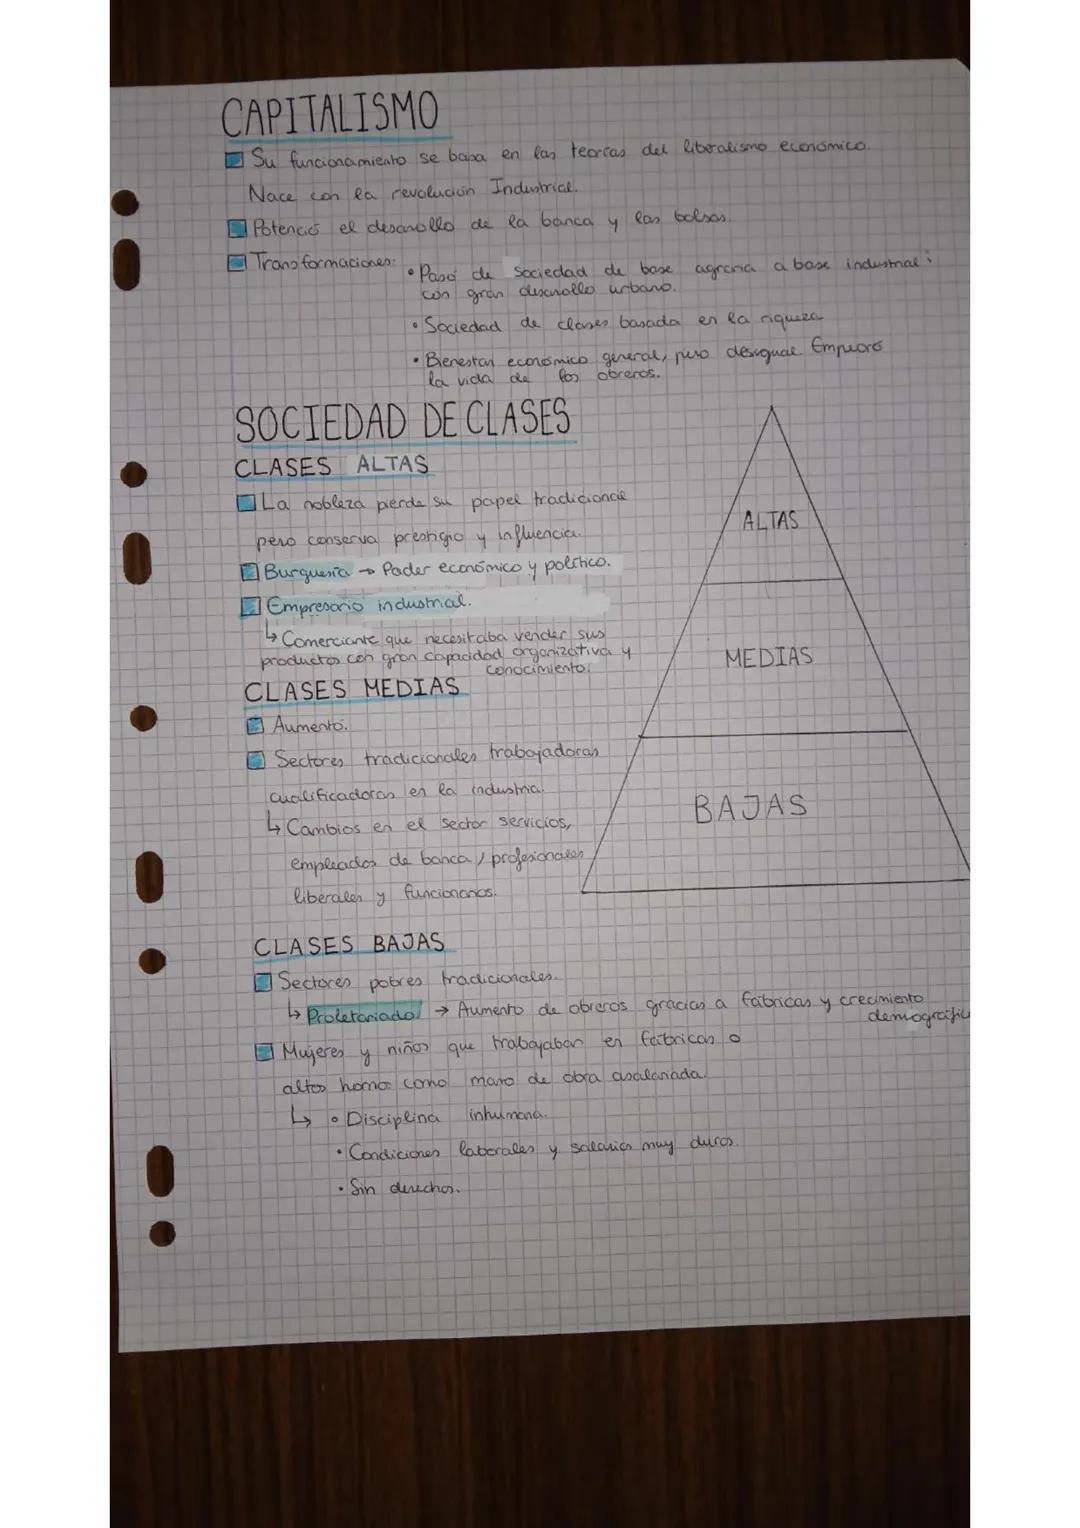 CAPITALISMO
Su funcionamiento se basa en las teorías del liberalismo económico.
Nace con la revolución Industrial.
Potenció el desarrollo de la banca y las bolsas.
Transformaciones:
• Pasó de sociedad de base agraria a base industrial:
con gran desarrollo urbano.
• Sociedad de clases basada en la riqueza
• Bienestar económico general, pero desigual Empeoró
la vida de los obreros.
SOCIEDAD DE CLASES
CLASES ALTAS
La nobleza pierde su papel tradicional
pero conserva prestigio y influencia.
Burguesía → Poder económico y político.
Empresario industrial.
↳ Comerciante que necesitaba vender sus
productos con gran capacidad organizativa y
conocimiento.
ALTAS
MEDIAS
BAJAS
CLASES MEDIAS
Aumentó.
Sectores tradicionales trabajadoras
cualificadoras en la industria.
↳ Cambios en el sector servicios,
empleados de banca, profesionales
liberales y funcionarios.
CLASES BAJAS
Sectores pobres tradicionales.
↳ Proletariado → Aumento de obreros gracias a fábricas y crecimiento
Mujeres y niños que trabajaban en fábricas o
altos hornos como mano de obra asalariada.
↳ • Disciplina inhumana.
• Condiciones laborales y salarios muy duros.
• Sin derechos.